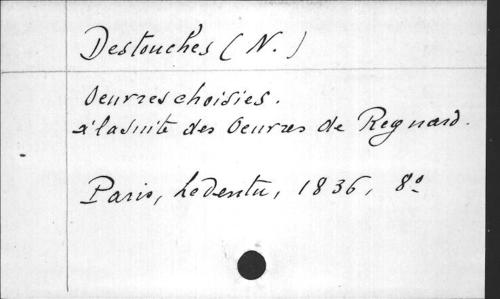 Destouches (N.)
Oeuvres choisies.
à la suite des Oeuvres de Regnard.
Paris, Ledentu, 1836, 8º